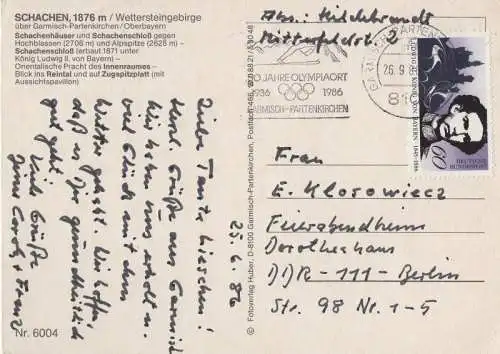 SCHACHEN, 1876 m / Wettersteingebirge
über Garmisch-Partenkirchen/Oberbayern
Schachenhäuser und Schachenschloß gegen
Hochblassen (2706 m) und Alpspitze (2628 m) –
Schachenschloß (erbaut 1871 unter
König Ludwig II. von Bayern) –
Orientalische Pracht des Innenraumes –
Blick ins Reintal und auf Zugspitzplatt (mit
Aussichtspavillon)
Liebe Tante Lieschen!
Herzl. Grüße aus Garmisch
Wir haben uns erholt u.
viel Glück mit dem
Wetter gehabt. Wir hoffen
daß es Dir gesundheitlich
gut geht.
Viele Grüße
Deine Carola + Franz
25. 9. 86
Nr. 6004
© Fotoverlag Huber, D-8100 Garmisch-Partenkirchen, Postfach
Abs.: Hildebrandt
Mittenfeldstr. 2
JAHRE OLYMPIAORT
1936 1986
GARMISCH-PARTENKIRCHEN
GARMISCH-PARTENKIRCHEN
26.9.86
LUDWIG II. KÖNIG VON BAYERN 1845-1886
60
DEUTSCHE BUNDESPOST
Frau
E. Klosowiecz
Feierabendheim
Dorotheahaus
DDR – 111 – Berlin
Str. 98 Nr. 1-5